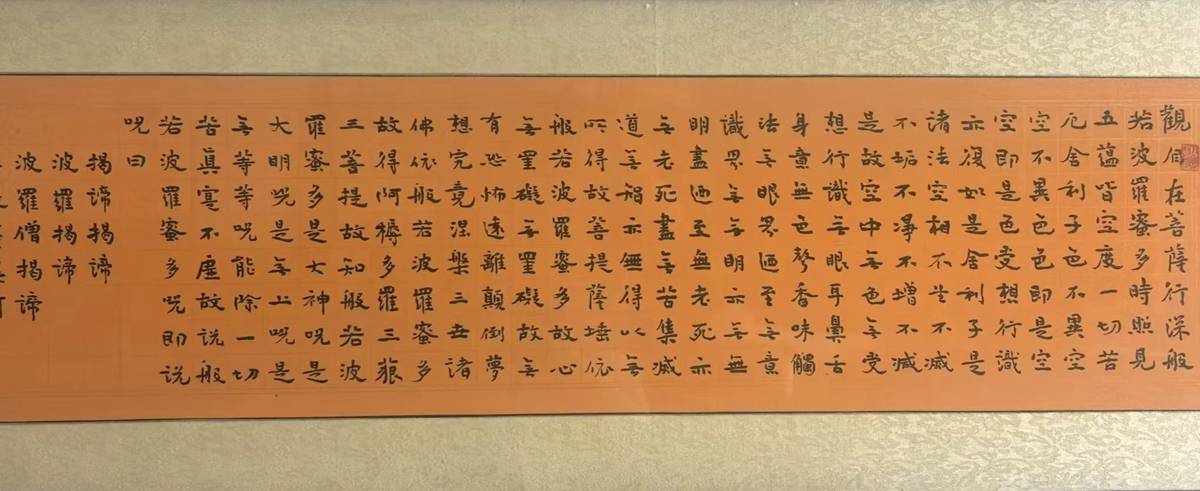 觀自在菩薩行深般
若波羅蜜多時照見
五蘊皆空度一切苦
厄舍利子色不異空
空不異色色即是空
空即是色受想行識
亦復如是舍利子是
諸法空相不生不滅
不垢不淨不增不減
是故空中無色無受
想行識無眼耳鼻舌
身意無色聲香味觸
法無眼界迺至無意
識界無無明亦無無
明盡迺至無老死亦
無老死盡無苦集滅
道無智亦無得以無
所得故菩提薩埵依
般若波羅蜜多故心
無罣礙無罣礙故無
有恐怖遠離顛倒夢
想究竟涅槃三世諸
佛依般若波羅蜜多
故得阿耨多羅三藐
三菩提故知般若波
羅蜜多是大神咒是
大明咒是無上咒是
無等等咒能除一切
苦真實不虛故說般
若波羅蜜多咒即說
咒曰
揭諦揭諦
波羅揭諦
波羅僧揭諦